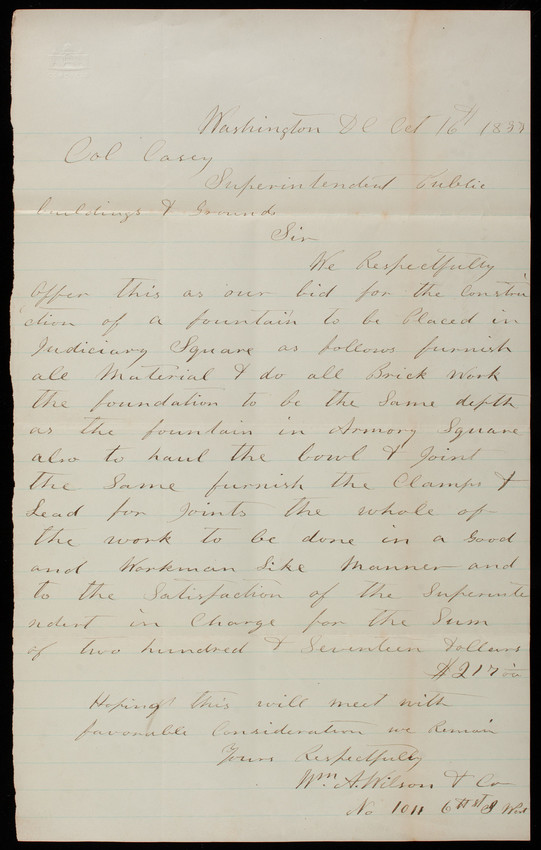 Washington DC Oct 16th
Col Casey
Superintendent Public
buildings & Grounds
Sir
We Respectfully
Offer this as our bid for the Constru
ction of a fountain to be Placed in
Judiciary Square as follows furnish
all Material & do all Brick Work
the foundation to be the Same depth
as the fountain in Armory Square
also to haul the bowl & Joint
the Same furnish the Clamps &
Lead for Joints the whole of
the work to be done in a Good
and Workman Like Manner and
to the Satisfaction of the Superinte
ndent in Charge for the Sum
of two hundred & Seventeen Dollars
$217 00
Hoping this will meet with
favorable Consideration we Remain
Yours Respectfully
Wm A. Wilson & Co
No 1011 6th St